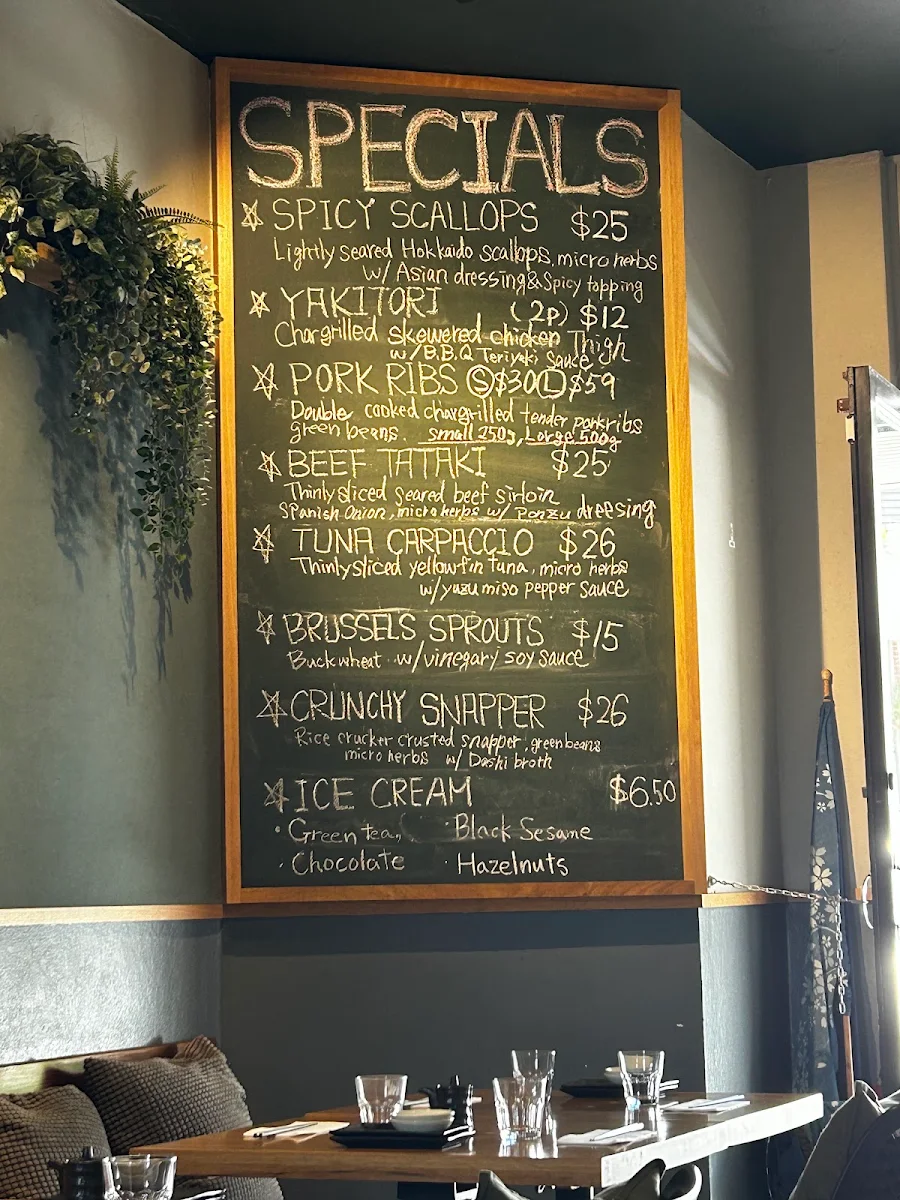 SPECIALS
SPICY SCALLOPS $25
Lightly seared Hokkaido scallops, micro herbs
w/ Asian dressing & Spicy topping
YAKITORI (2p) $12
Chargrilled skewered chicken Thigh
w/ B.B.Q Teriyaki sauce
PORK RIBS Ⓢ$30 Ⓛ$59
Double cooked chargrilled tender porkribs
green beans. small 250g, Large 500g
BEEF TATAKI $25
Thinly sliced seared beef sirloin
Spanish Onion, micro herbs w/ Ponzu dreesing
TUNA CARPACCIO $26
Thinly sliced yellowfin tuna, micro herbs
w/ yuzu miso pepper sauce
BRUSSELS SPROUTS $15
Buckwheat w/ vinegary soy sauce
CRUNCHY SNAPPER $26
Rice crucker crusted snapper, green beans
micro herbs w/ Dashi broth
ICE CREAM $6.50
· Green tea, · Black Sesame
· Chocolate · Hazelnuts